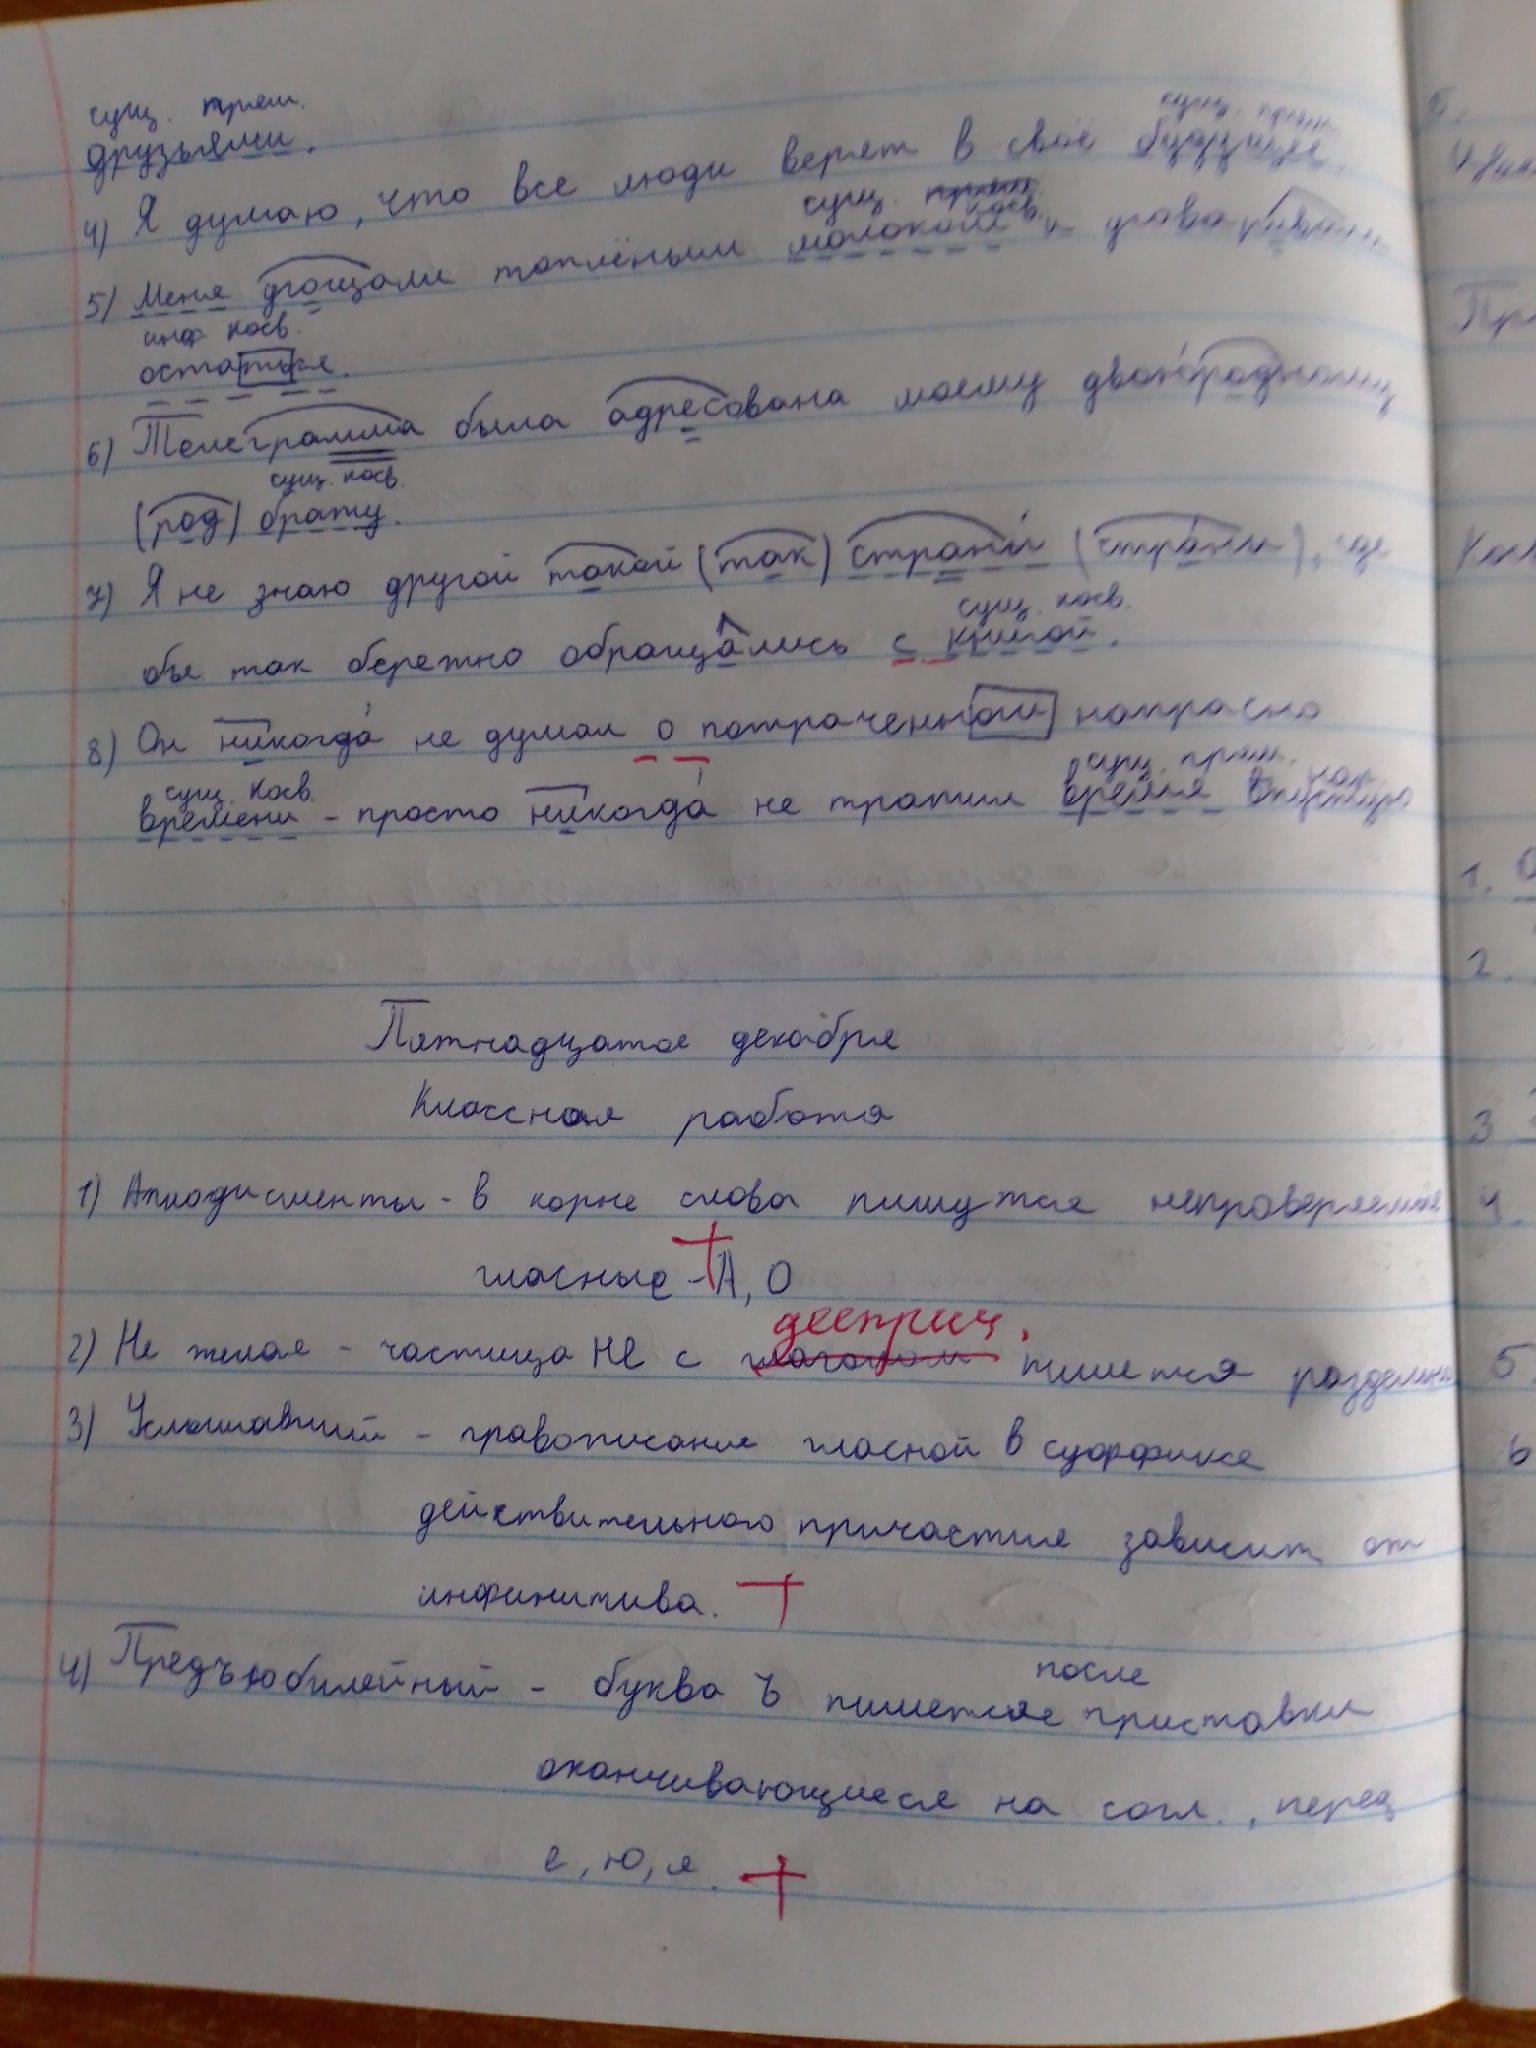 сущ. прям.
друзьями.
сущ. прям.
4) Я думаю, что все люди верят в своё будущее.
сущ. косв.
5) Меня угощали топлёным молоком и уговаривали
инф. косв.
остаться.
6) Телеграмма была адресована моему двоюродному
сущ. косв.
(род) брату.
7) Я не знаю другой такой (так) страны (страны), где
сущ. косв.
бы так бережно обращались с книгой.
8) Он никогда не думал о потраченном напрасно
сущ. косв. сущ. прям. нар.
времени - просто никогда не тратил время впустую
Пятнадцатое декабря
Классная работа
1) Аплодисменты - в корне слова пишутся непроверяемые
гласные - А, О
дееприч.
2) Не желая - частица НЕ с глаголом пишется раздельно
3) Услышавший - правописание гласной в суффиксе
действительного причастия зависит от
инфинитива.
после
4) Предъюбилейный - буква Ъ пишется приставки
оканчивающиеся на согл., перед
е, ю, я.
5.
6
1.
2.
3
4.